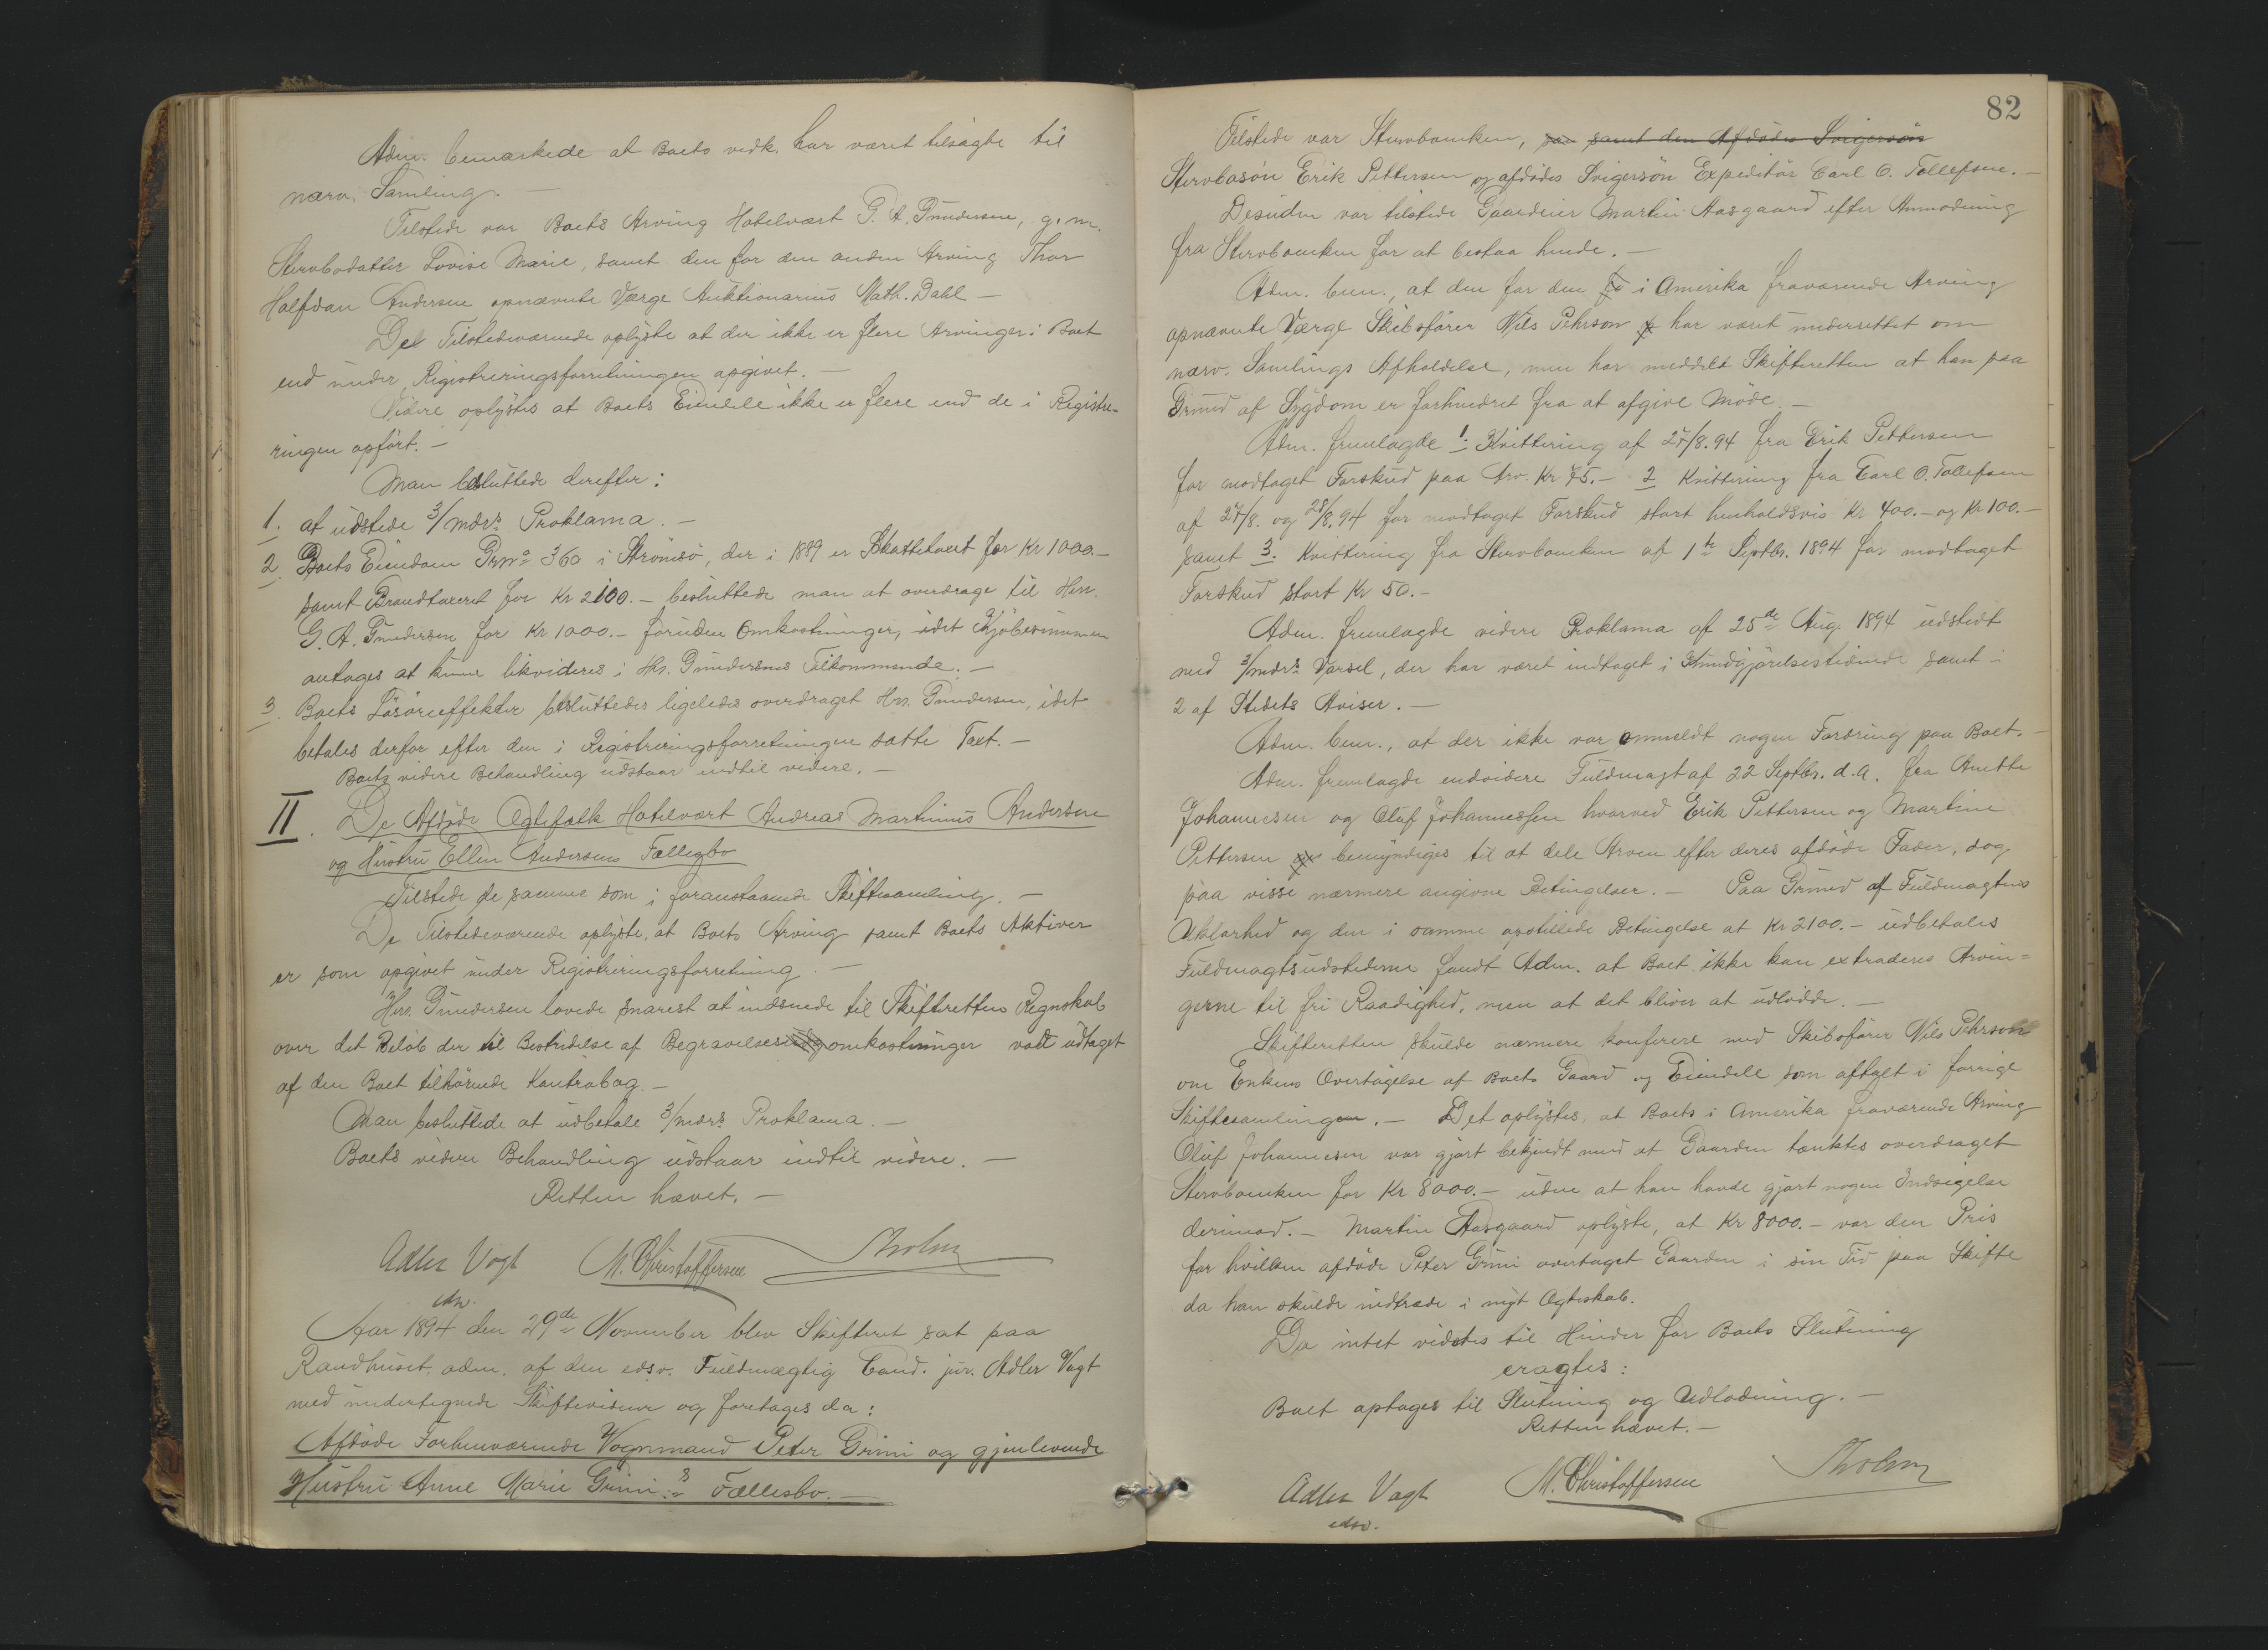 Adm. bemærkede at Boets vedk. har været tilsagte til
nærv. Samling. —
Tilstede var Boets Arving Hotelvært G. A. Gundersen, g. m.
Stervbodatter Lovise Marie, samt den for den anden Arving Thor
Halfdan Andersen opnævnte Værge Auktionarius Math. Dahl —
De Tilstedeværende oplyste at der ikke er flere Arvinger i Boet
end under Registreringsforretningen opgivet. —
Videre oplystes at Boets Eiendele ikke er flere end de i Registre-
ringen opført. —
Man besluttede derefter:
1. at udstede 3/mdrs. Proklama. —
2. Boets Eiendom Grno 360 i Strømsø, der i 1889 er Skattetaxert for Kr 1000.—
samt Brandtaxeret for Kr 2100.— besluttede man at overdrage til Herr
G. A. Gundersen for Kr 1000.— foruden Omkostninger, idet Kjøbesummen
antages at kunne likvideres i Hr. Gundersens Tilkommende. —
3. Boets Løsøreeffekter besluttedes ligeledes overdraget Hr. Gundersen, idet
betales derfor efter den i Registreringsforretningen satte Taxt. —
Boets videre Behandling udstaar indtil videre. —
II. De Afdøde Ægtefolk Hotelvært Andreas Martinius Andersen
og Hustru Ellen Andersens Fællesbo
Tilstede de samme som i foranstaaende Skiftesamling. —
De Tilstedeværende oplyste, at Boets Arving samt Boets Aktiver
er som opgivet under Registreringsforretning. —
Hr. Gundersen lovede snarest at indsende til Skifteretten Regnskab
over det Beløb der til Bestridelse af Begravelsesomkostninger var udtaget
af den Boet tilhørende Kontrabog. —
Man besluttede at udbetale 3/mdrs. Proklama. —
Boets videre Behandling udstaar indtil videre. —
Retten hævet. —
Adler Vogt M. Christoffersen Tholm
edsv.
Aar 1894 den 29de November blev Skifteret sat paa
Raadhuset, adm. af den edsv. Fuldmægtig Cand. jur. Adler Vogt
med undertegnede Skiftevidner og foretages da:
Afdøde Forhenværende Vognmand Peter Grini og gjenlevende
Hustru Anne Marie Grini's Fællesbo. —
82
Tilstede var Stervboenken, samt den Afdødes Svigersøn
Stervbosøn Erik Pettersen og afdødes Svigersøn Expeditør Carl O. Tollefsen. —
Desuden var tilstede Gaardeier Martin Aasgaard efter Anmodning
fra Stervboenken for at bistaa hende. —
Adm. bem., at den for den i Amerika fraværende Arving
opnævnte Værge Skibsfører Nils Pehrson har været underrettet om
nærv. Samlings Afholdelse, men har meddelt Skifteretten at han paa
Grund af Sygdom er forhindret fra at afgive Møde. —
Adm. fremlagde 1: Kvittering af 27/8. 94 fra Erik Pettersen
for modtaget Forskud paa Arv. Kr 75.— 2 Kvittering fra Carl O. Tollefsen
af 27/8. og 28/8. 94 for modtaget Forskud stort henholdsvis Kr 400.— og Kr 100.—
samt 3. Kvittering fra Stervboenken af 1te Septbr. 1894 for modtaget
Forskud stort Kr 50.—
Adm. fremlagde videre Proklama af 25de Aug. 1894 udstedt
med 3/mdrs. Varsel, der har været indtaget i Kundgjørelsestidende samt i
2 af Stedets Aviser. —
Adm. bem., at der ikke var anmeldt nogen Fordring paa Boet. —
Adm. fremlagde endvidere Fuldmagt af 22 Septbr. d. A. fra Anette
Johannesen og Oluf Johannessen hvorved Erik Pettersen og Martine
Pettersen bemyndiges til at dele Arven efter deres afdøde Fader, dog
paa visse nærmere angivne Betingelser. — Paa Grund af Fuldmagtens
Uklarhed og den i samme opstillede Betingelse at Kr 2100.— udbetales
Fuldmagtsudstederne fandt Adm. at Boet ikke kan extraderes Arvin=
gerne til fri Raadighed, men at det bliver at udlodde. —
Skifteretten skulde nærmere konferere med Skibsfører Nils Pehrson
om Enkens Overtagelse af Boets Gaard og Eiendele som aftalt i forrige
Skiftesamlingen. — Det oplystes, at Boets i Amerika fraværende Arving
Oluf Johannesen var gjort bekjendt med at Gaarden tænktes overdraget
Stervboenken for Kr 8000.— uden at han havde gjort nogen Indsigelse
derimod. — Martin Aasgaard oplyste, at Kr 8000.— var den Pris
for hvilken afdøde Peter Grini overtaget Gaarden i sin Tid paa Skifte
da han skulde indtræde i nyt Ægteskab.
Da intet vidstes til Hinder for Boets Slutning
eragtes:
Boet optages til Slutning og Udlodning. —
Retten hævet. —
Adler Vogt M. Christoffersen Tholm
edsv.